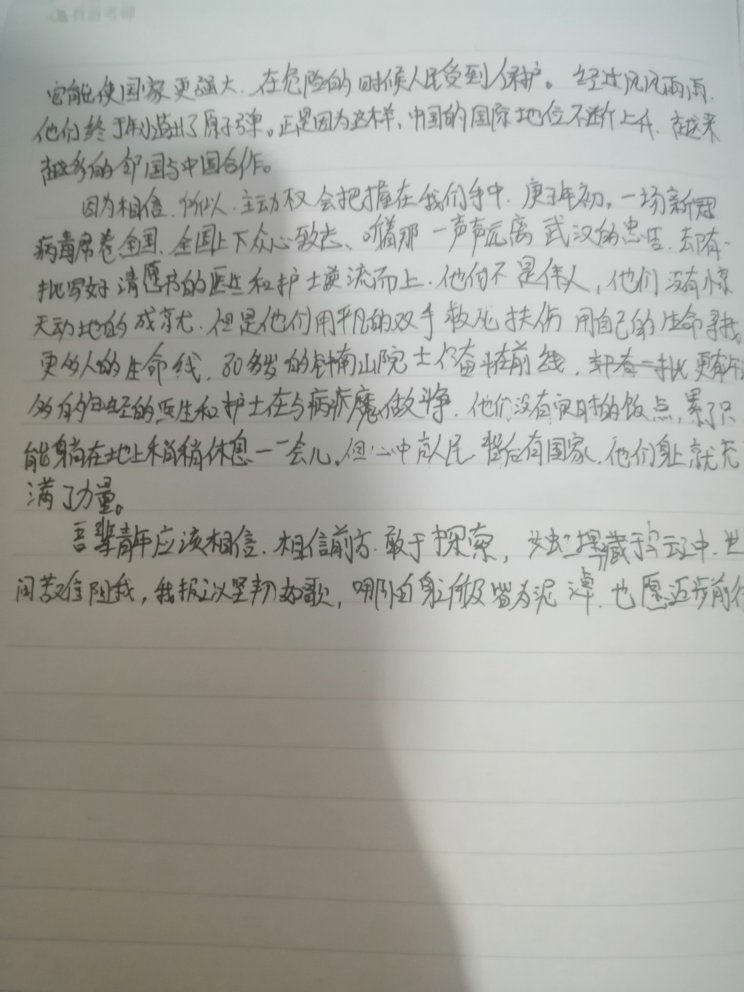 它能使国家更强大，在危险的时候人民受到保护。经过风风雨雨，
他们终于制造出了原子弹。正是因为这样，中国的国际地位不断上升，越来
越多的邻国与中国合作。
因为相信，所以，主动权会把握在我们手中，庚子年初，一场新冠
病毒席卷全国，全国上下众心致志、喘着那一声声远离武汉的忠告，却有一
批写好请愿书的医生和护士逆流而上，他们不是伟人，他们没有惊
天动地的成就，但是他们用平凡的双手救死扶伤 用自己的生命寻找
更多人的生命线，80多岁的钟南山院士仍奋斗在前线，却有一批更有
多的年轻的医生和护士在与病疾魔做斗争，他们没有定时的饭点，累了只
能躺在地上稍稍休息一一会儿，但心中有人民 背后有国家，他们身上就充
满了力量。
吾辈青年应该相信，相信前方，敢于探索，藏于云中，世
间苦难阻我，我报之以坚韧如歌，哪怕身之所及皆为泥淖，也愿迈步前往